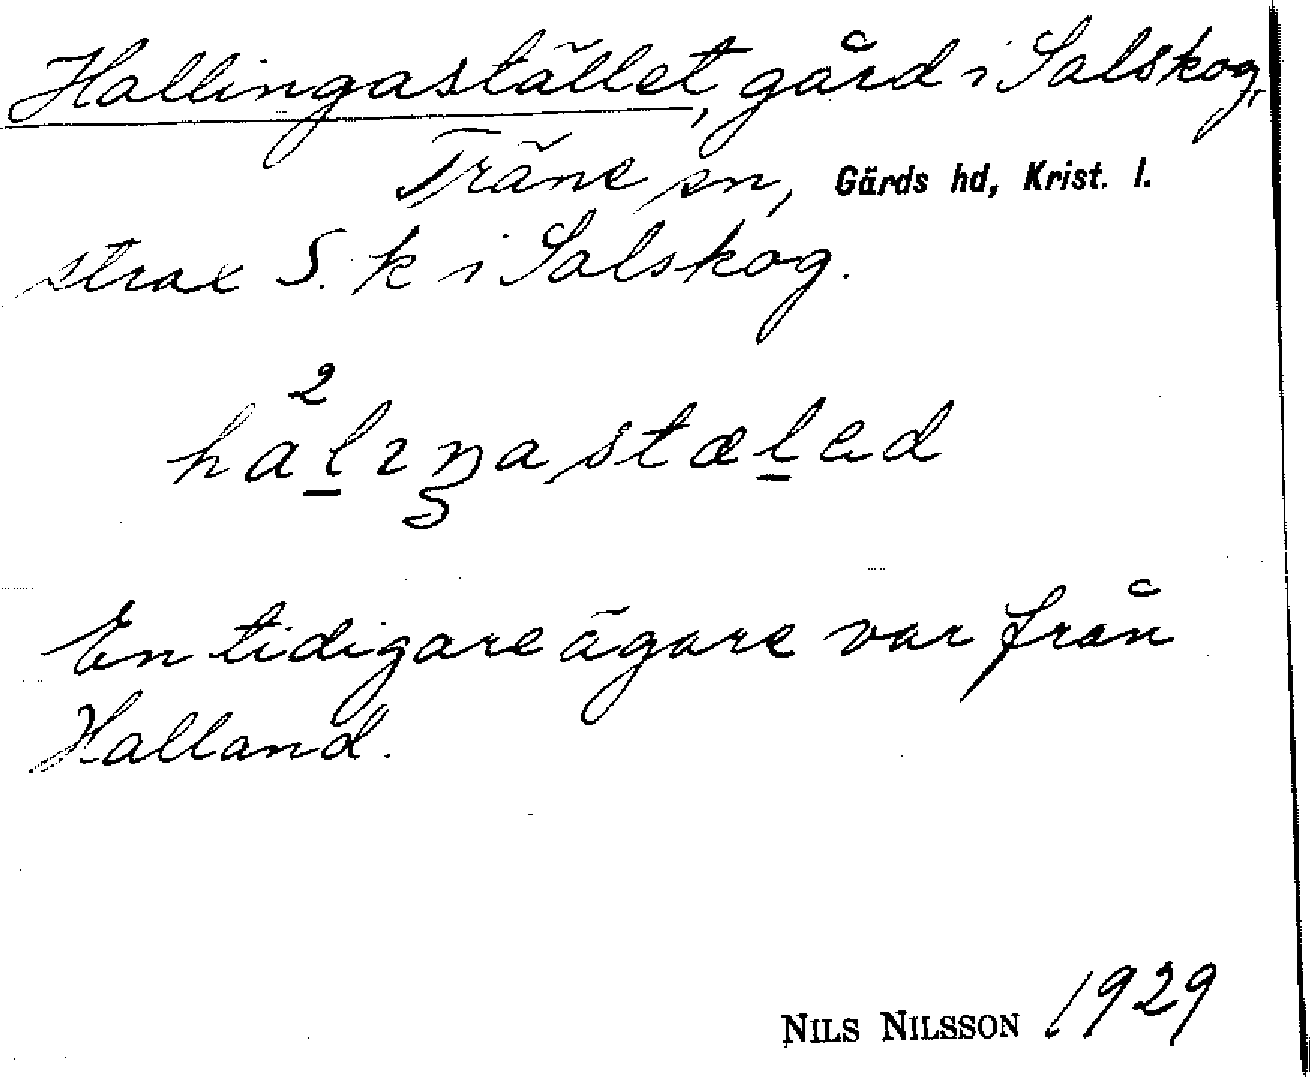 Hallingastället, gård i Salskog,
Träne sn, Gärds hd, Krist. l.
strax S. k i Salskog.
En tidigare ägare var från
Halland.
NILS NILSSON 1929